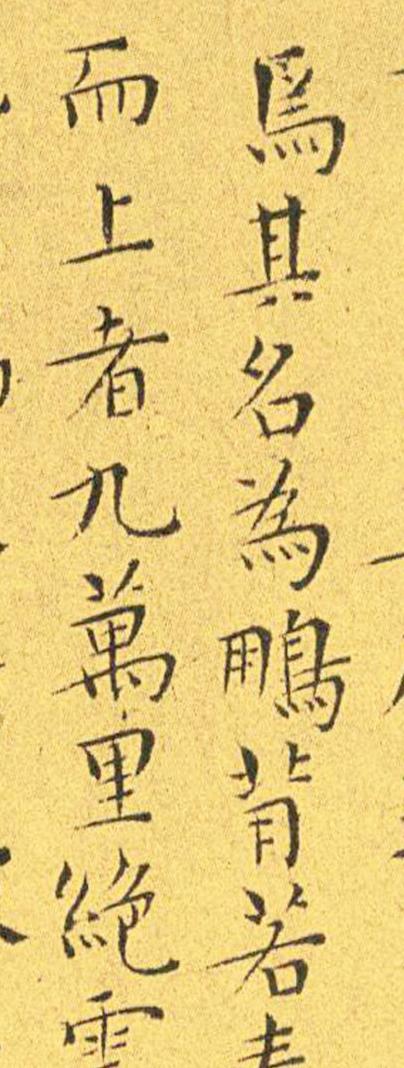 焉其名為鵬背若
而上者九萬里絕雲